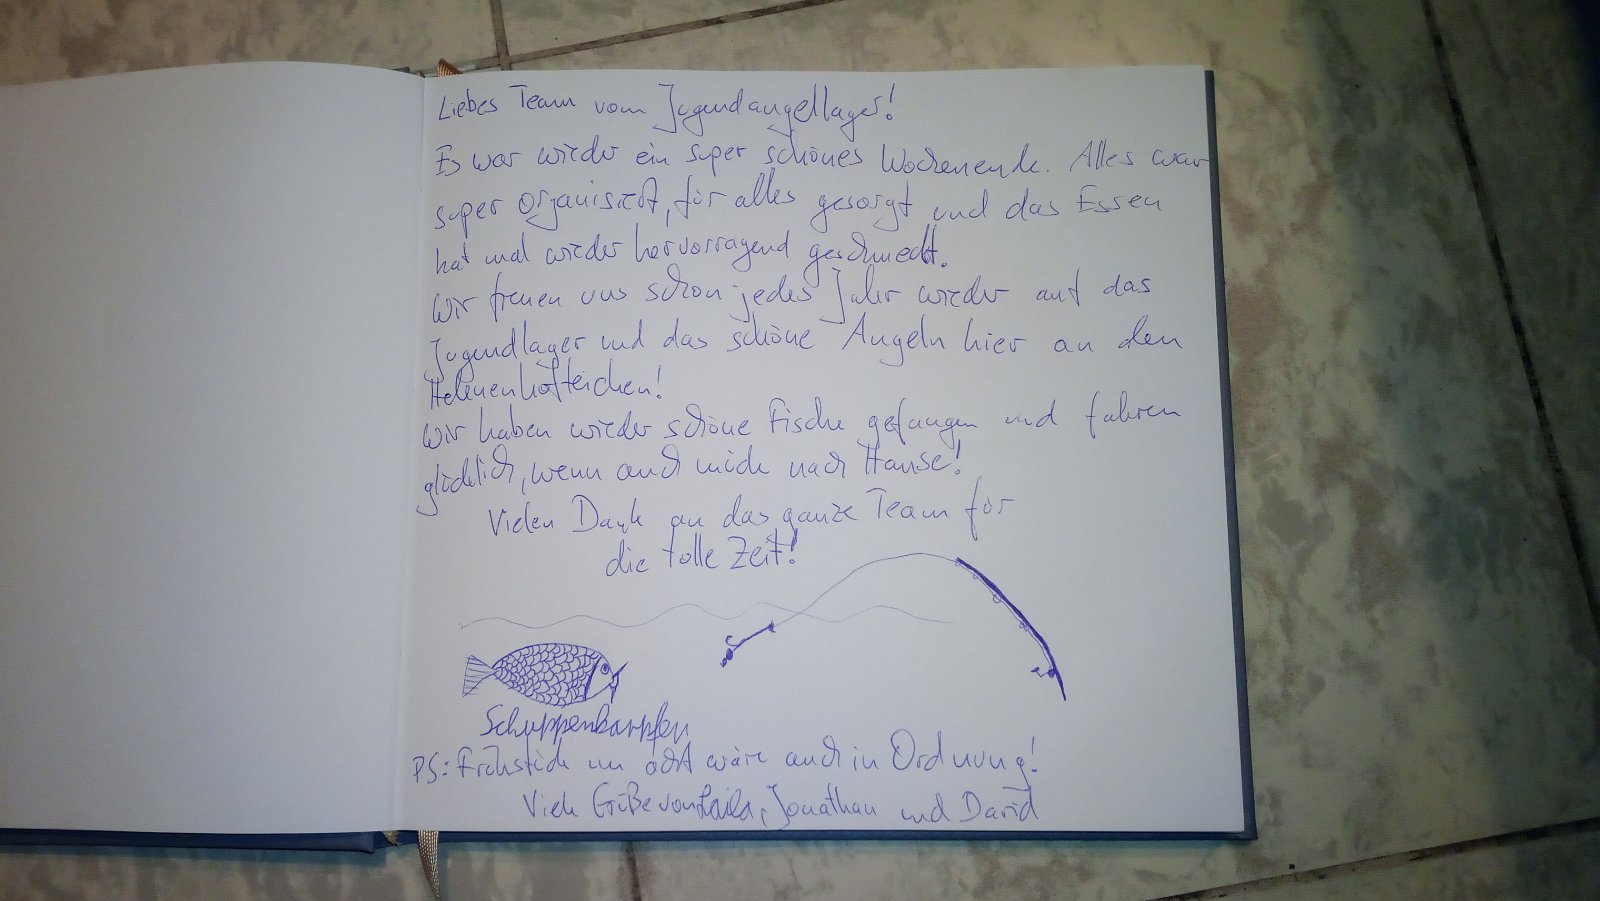 Liebes Team vom Jugendangellager!
Es war wieder ein super schönes Wochenende. Alles war
super organisiert, für alles gesorgt und das Essen
hat mal wieder hervorragend geschmeckt.
Wir freuen uns schon jedes Jahr wieder auf das
Jugendlager und das schöne Angeln hier an den
Helenenhofteichen!
Wir haben wieder schöne Fische gefangen und fahren
glücklich, wenn auch müde nach Hause!
Vielen Dank an das ganze Team für
die tolle Zeit!
Schuppenkarpfen
PS: Frühstück um acht wäre auch in Ordnung!
Viele Grüße von Laila, Jonathan und David